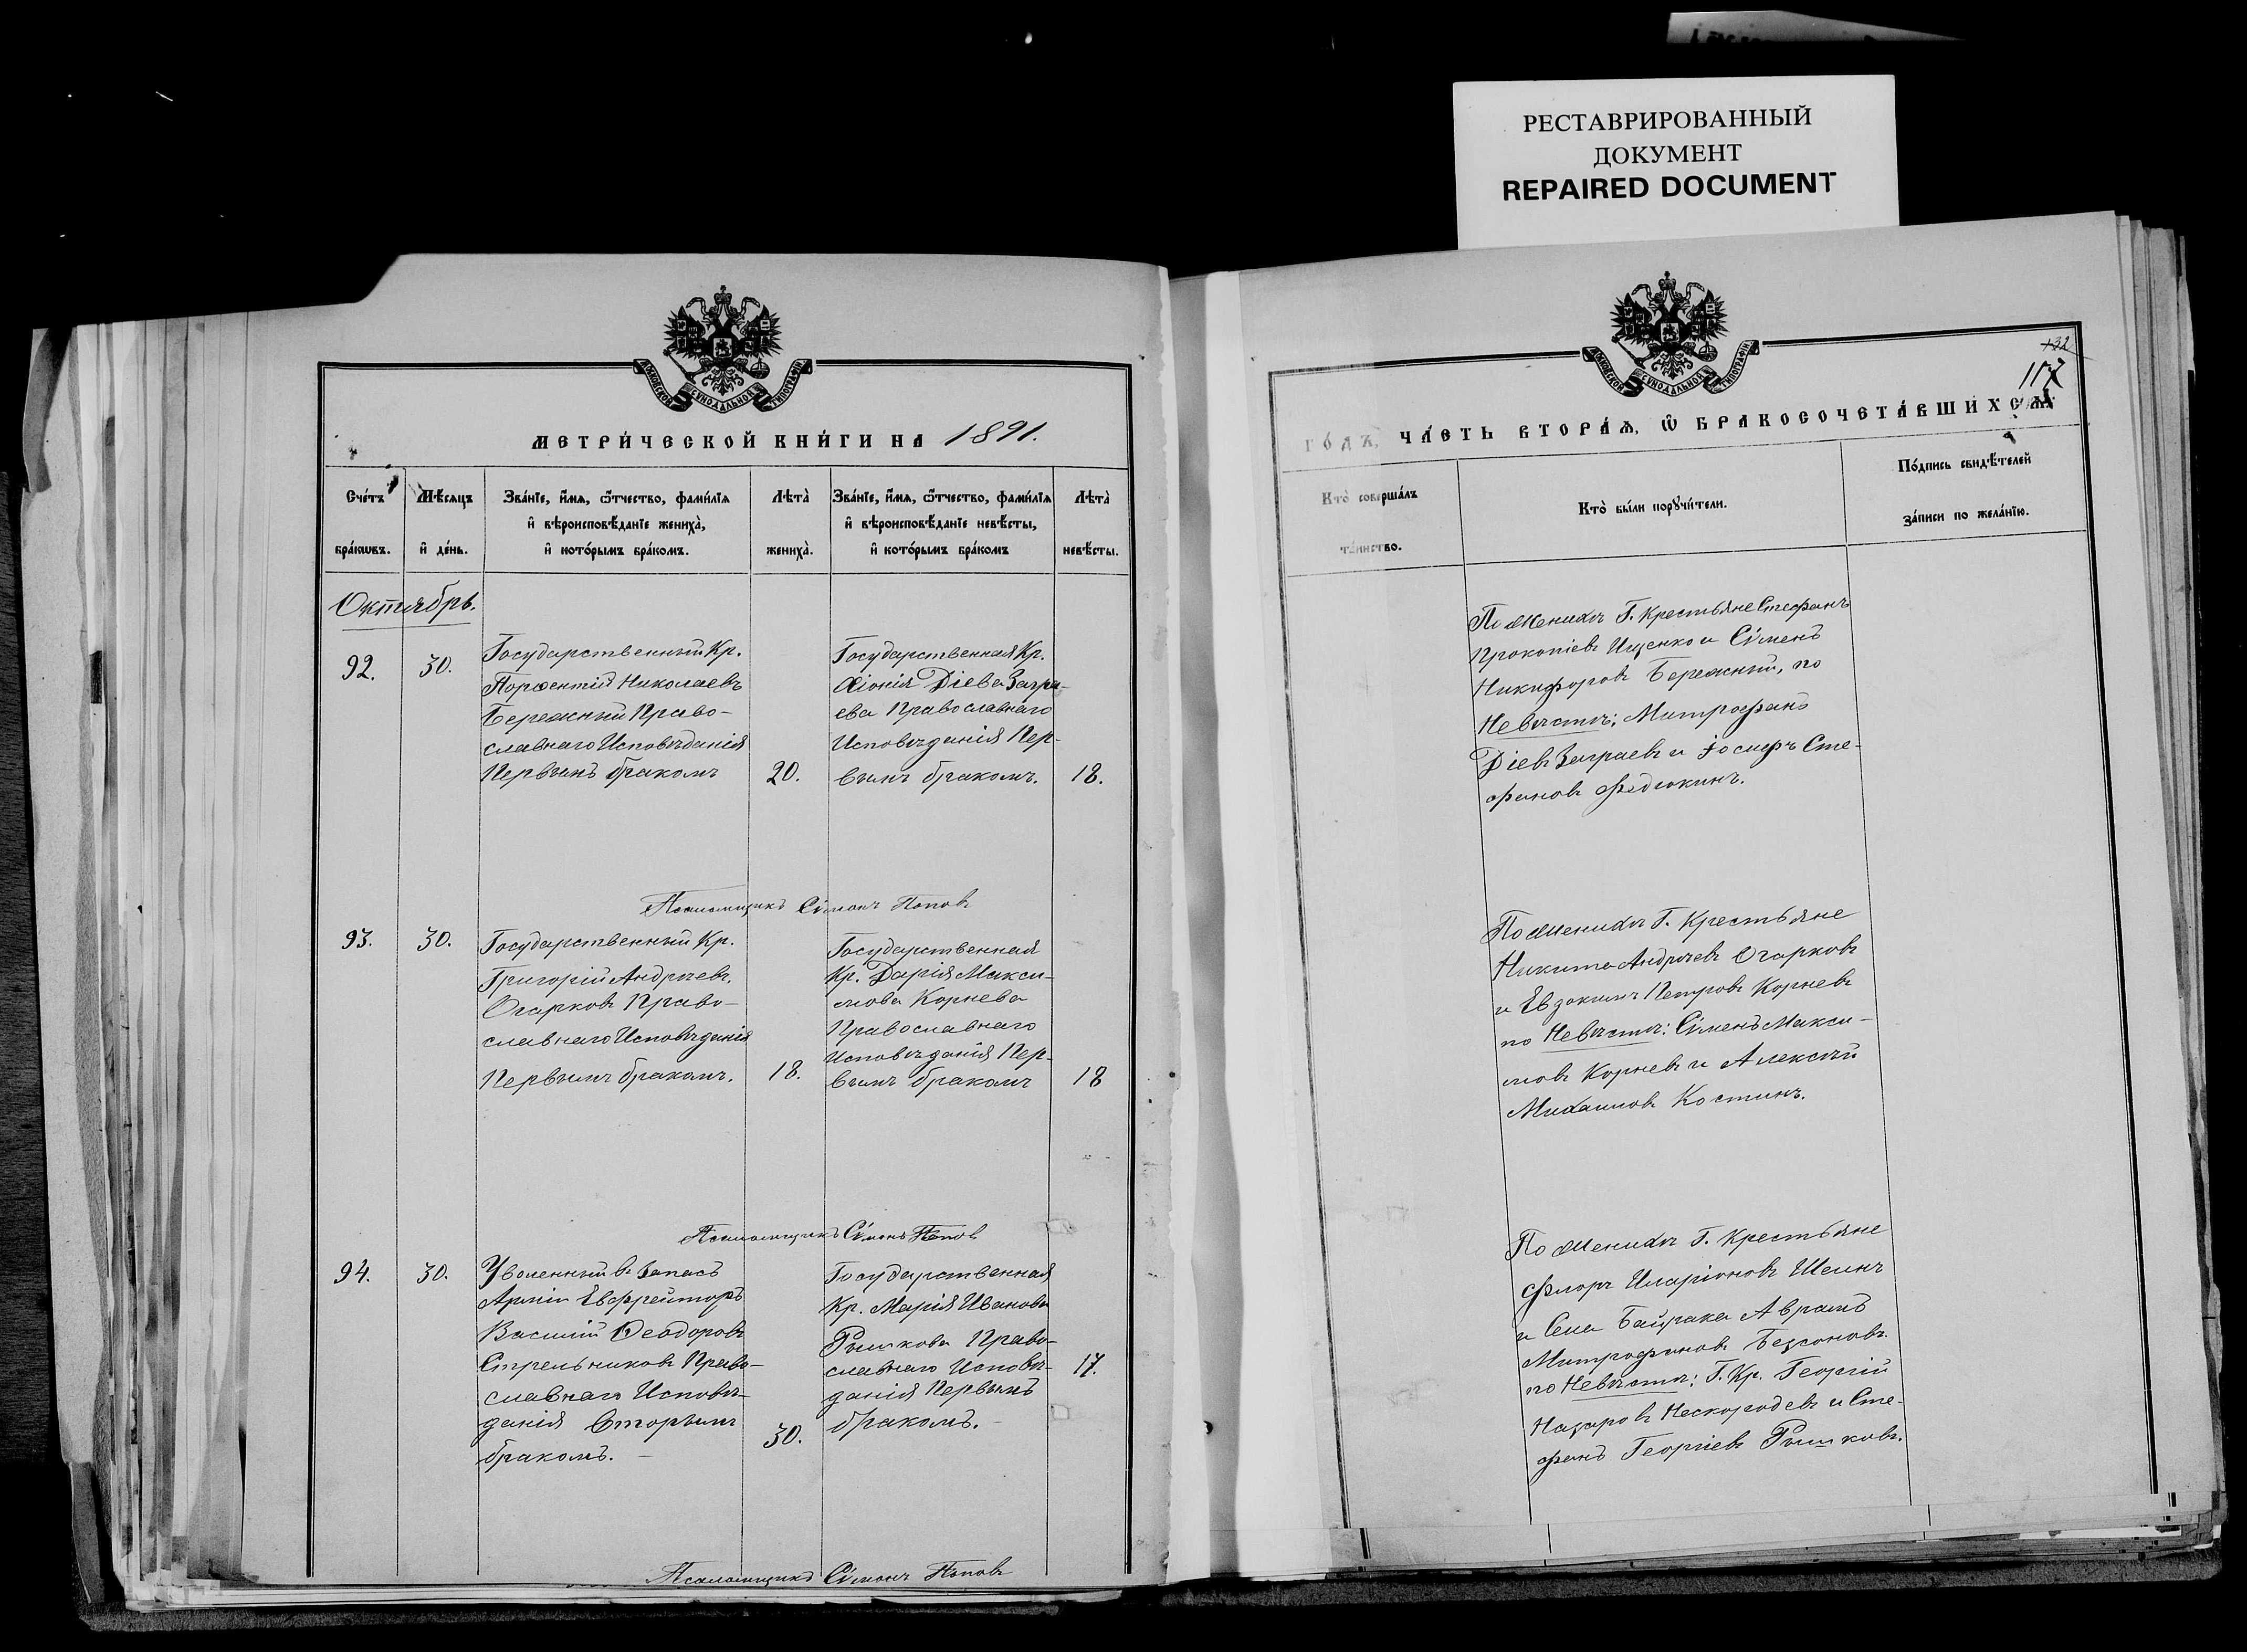 РЕСТАВРИРОВАННЫЙ
ДОКУМЕНТ
REPAIRED DOCUMENT
МОСКОВСКОЙ СѴНОДАЛЬНОЙ ТИПОГРАФІИ
МЕТРИ́ЧЕСКОЙ КНИ́ГИ НА 1891.
Сче́тъ бра́кѡвъ.
Мѣ́сяцъ и҆ де́нь.
Зва́нїе, и҆́мѧ, ѻ҆́тчество, фами́лїѧ
и҆ вѣроисповѣ́данїе жениха̀,
и҆ кото́рымъ бра́комъ.
Лѣта̀ жениха̀.
Зва́нїе, и҆́мѧ, ѻ҆́тчество, фами́лїѧ
и҆ вѣроисповѣ́данїе невѣ́сты,
и҆ кото́рымъ бра́комъ
Лѣта̀ невѣ́сты.
Октябрь.
92.
30.
Государственный Кр.
Порфентій Николаевъ
Бережный Право-
славнаго Исповѣданія
Первымъ бракомъ
20.
Государственная Кр.
Ѳіонія Діева Загра-
ева Православнаго
Исповѣданія Пер-
вымъ бракомъ.
18.
Псаломщикъ Сѵмонъ Поповъ
93.
30.
Государственный Кр.
Григорій Андреевъ
Огарковъ Право-
славнаго Исповѣданія
Первымъ бракомъ.
18.
Государственная
Кр. Дарія Макси-
мова Корнева
Православнаго
Исповѣданія Пер-
вымъ бракомъ
18
Псаломщикъ Сѵмонъ Поповъ
94.
30.
Уволенный въ Запасъ
Арміи Евфрейторъ
Василій Ѳеодоровъ
Стрельниковъ Право-
славнаго Исповѣ-
данія Вторымъ
бракомъ. —
30.
Государственная
Кр. Марія Иванова
Рышкова Право-
славнаго Исповѣ-
данія Первымъ
бракомъ. —
17.
Псаломщикъ Сѵмонъ Поповъ
МОСКОВСКОЙ СѴНОДАЛЬНОЙ ТИПОГРАФІИ
132
117
ГО́ДЪ, ЧА́СТЬ ВТОРА́Ѧ, Ѽ БРАКОСОЧЕТА́ВШИХСѦ.
Кто̀ соверша́лъ
та́инство.
Кто̀ бы́ли порꙋчи́тели.
По́дпись свидѣ́телей
за́писи по жела́нїю.
По Женихѣ Г. Крестьяне Стефанъ
Прокопіевъ Ищенко и Сѵменъ
Никифоровъ Бережный, по
Невѣстѣ: Митрофанъ
Діевъ Заграевъ и Іосифъ Сте-
фановъ Федюкинъ.
По Женихѣ Г. Крестьяне
Никита Андреевъ Огарковъ
и Евдокимъ Петровъ Корневъ
по Невѣстѣ: Сѵменъ Макси-
мовъ Корневъ и Алексѣй
Михаиловъ Костинъ.
По Женихѣ Г. Крестьяне
Флоръ Иларіоновъ Шеинъ
и Села Байрака Аврамъ
Митрофановъ Безсоновъ.
по Невѣстѣ: Г. Кр. Георгій
Назаровъ Нескородевъ и Сте-
фанъ Георгіевъ Рышковъ.